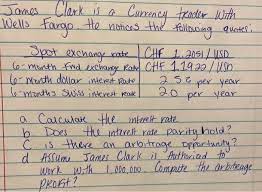 James Clark is a Currency trader with
Wells Fargo. He notices the following quotes:
Spot exchange rate CHF 1.2051/USD
6-month Fwd exchange Rate CHF 1.1922/USD
6-month dollar interest Rate 2.5% per year
6-months Swiss interest rate 2.0 per year
a Calculate the interest rate
b Does the interest rate parity hold?
C is there an arbitrage opportunity?
d Assume James Clark is Authorized to
work with 1,000,000. Compute the arbitrage
profit?